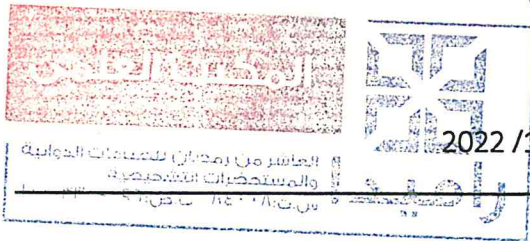 المكتب العلمى
2022 /1
العاشر من رمضان للصناعات الدوائية
والمستحضرات التشخيصية
راميدا